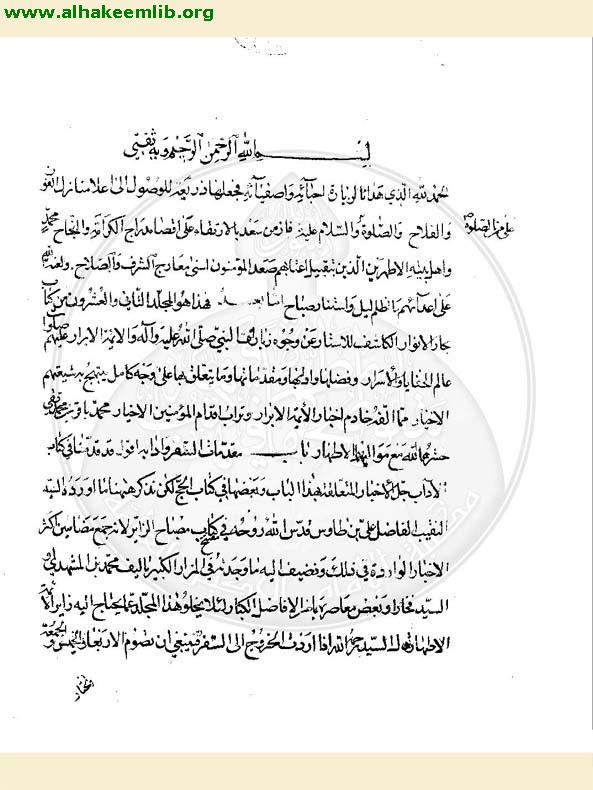 www.alhakeemlib.org
بسم الله الرحمن الرحيم وبه ثقتي
الحمد لله الذي هدانا لزيارة احبائه واصفيائه فجعلها ذريعة للوصول الى اعلا منازل الفوز
والفلاح والصلوة والسلام على من فاز من سعد بالارتقاء على اقصا مدارج الكرامة والنجاح محمد
واهل بيته الاطهرين الذين بتقبيل اعتابهم صعد المؤمنون اسنى معارج الشرف والصلاح ولعنة الله
على اعدائهم ما اظلم ليل واستنار صباح اما بعد فهذا هو المجلد الثاني والعشرون من كتاب
بحار الانوار الكاشف للاستار عن وجوه زيارات النبي صلى الله عليه وآله والائمة الابرار عليهم صلوات
عالم الخفايا والاسرار وفضلها وآدابها ومقدماتها وما يتعلق بها على وجه كامل يبتهج به شيعتهم
الاخيار مما الفه خادم اخبار الأئمة الابرار وتراب اقدام المؤمنين الاخيار محمد باقر بن محمد تقي
حشرهما الله مع مواليهما الاطهار باب مقدمات السفر وآدابه اقول قد قدمنا في كتاب
الآداب جل الأخبار المتعلقة بهذا الباب وبعضها في كتاب الحج لكن نذكر هيهنا ما اورده السيد
النقيب الفاضل علي بن طاوس قدس الله روحه في كتاب مصباح الزائر لانه جمع مضامين اكثر
الاخبار الواردة في ذلك ونضيف اليه ما وجدته في المزار الكبير تاليف محمد بن المشهدي او
السيد فخار او بعض معاصريهما من الافاضل الكبار لئلا يخلو هذا المجلد عما يحتاج اليه زاير الأئمة
الاطهار قال السيد رحمه الله اذا اردت الخروج الى السفر فينبغي ان تصوم الاربعاء والخميس والجمعة